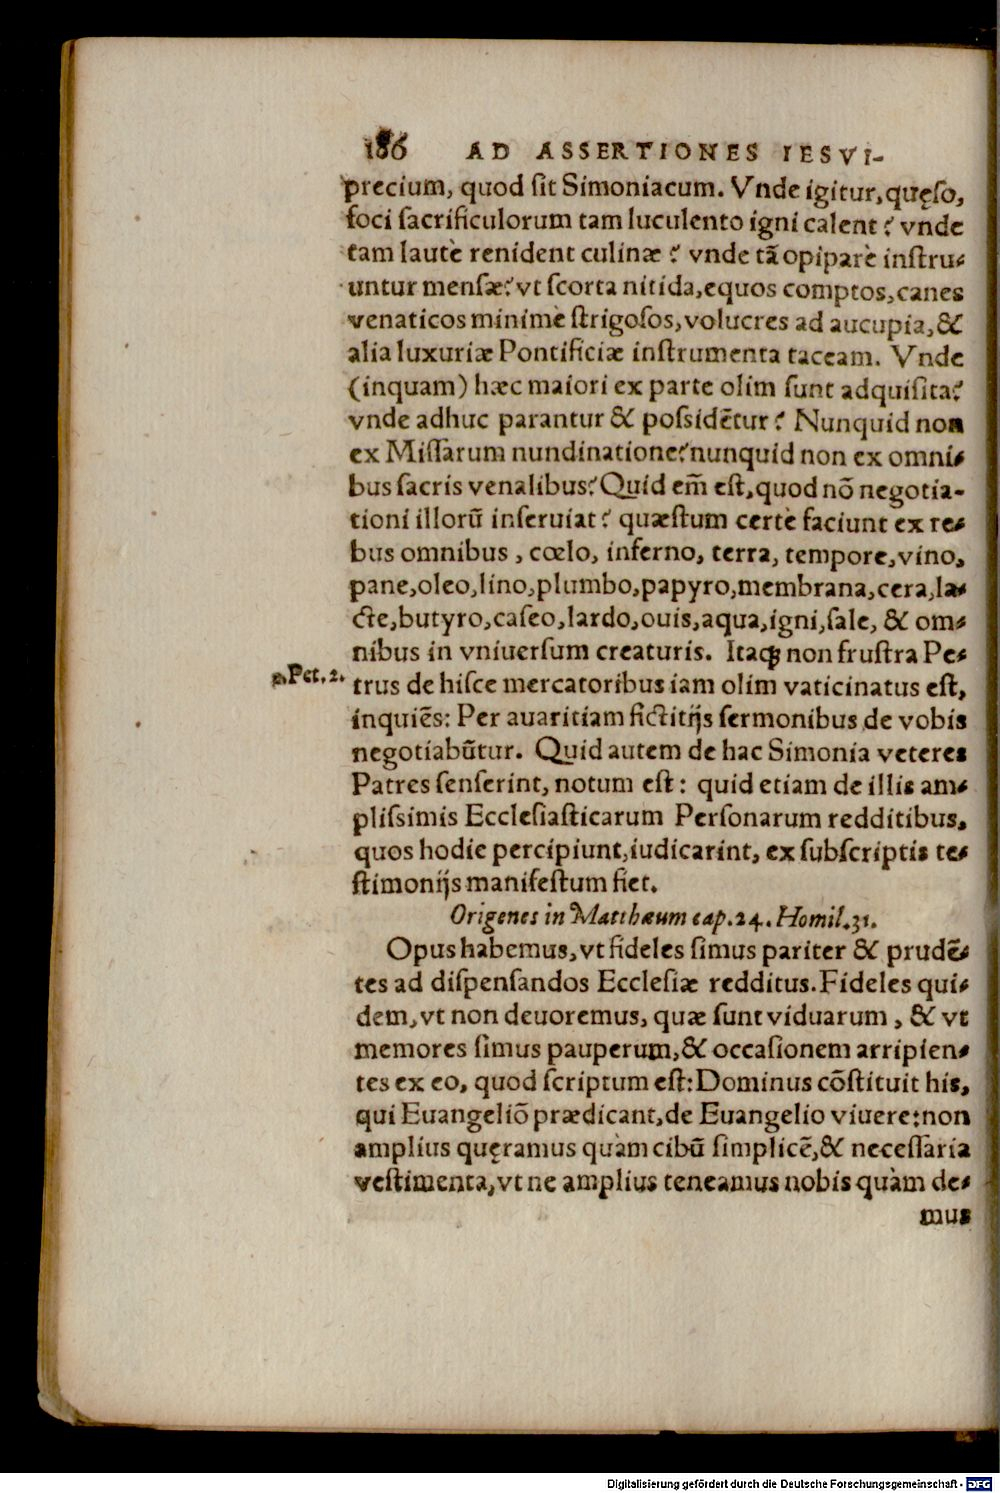 186 AD ASSERTIONES IESVI-
precium, quod sit Simoniacum. Vnde igitur, quęso,
foci sacrificulorum tam luculento igni calent? vnde
tam lautè renident culinæ? vnde tā opiparè instru-
untur mensæ? vt scorta nitida, equos comptos, canes
venaticos minimè strigosos, volucres ad aucupia, &
alia luxuriæ Pontificiæ instrumenta taceam. Vnde
(inquam) hæc maiori ex parte olim sunt adquisita?
vnde adhuc parantur & possidētur? Nunquid non
ex Missarum nundinatione? nunquid non ex omni-
bus sacris venalibus? Quid em̄ est, quod nō negotia-
tioni illorū inseruiat? quæstum certè faciunt ex re-
bus omnibus, cœlo, inferno, terra, tempore, vino,
pane, oleo, lino, plumbo, papyro, membrana, cera, la-
cte, butyro, caseo, lardo, ouis, aqua, igni, sale, & om-
nibus in vniuersum creaturis. Itaqꝫ non frustra Pe-
2. Pet. 2. trus de hisce mercatoribus iam olim vaticinatus est,
inquiēs: Per auaritiam fictitijs sermonibus de vobis
negotiabūtur. Quid autem de hac Simonia veteres
Patres senserint, notum est: quid etiam de illis am-
plissimis Ecclesiasticarum Personarum redditibus,
quos hodie percipiunt, iudicarint, ex subscriptis te-
stimonijs manifestum fiet.
Origenes in Matthæum cap. 24. Homil. 31.
Opus habemus, vt fideles simus pariter & prudē-
tes ad dispensandos Ecclesiæ redditus. Fideles qui-
dem, vt non deuoremus, quæ sunt viduarum, & vt
memores simus pauperum, & occasionem arripien-
tes ex eo, quod scriptum est: Dominus cōstituit his,
qui Euangeliō prædicant, de Euangelio viuere: non
amplius quęramus quàm cibū simplicē, & necessaria
vestimenta, vt ne amplius teneamus nobis quàm de-
mus
Digitalisierung gefördert durch die Deutsche Forschungsgemeinschaft - DFG